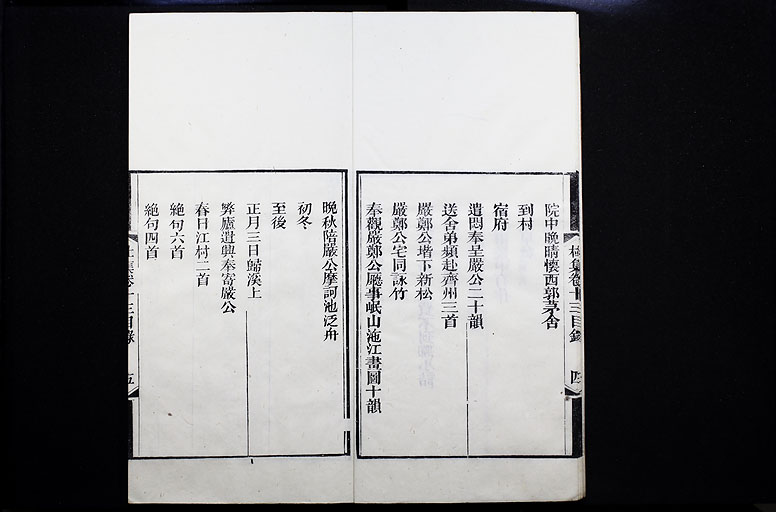 院中晚晴懷西郭茅舍
到村
宿府
遣悶奉呈嚴公二十韻
送舍弟頻赴齊州三首
嚴鄭公堦下新松
嚴鄭公宅同詠竹
奉觀嚴鄭公廳事岷山沲江畫圖十韻
杜集卷十三目錄
四
晚秋陪嚴公摩訶池泛舟
初冬
至後
正月三日歸溪上
弊廬遣興奉寄嚴公
春日江村二首
絶句六首
絶句四首
杜集卷十三目錄
五